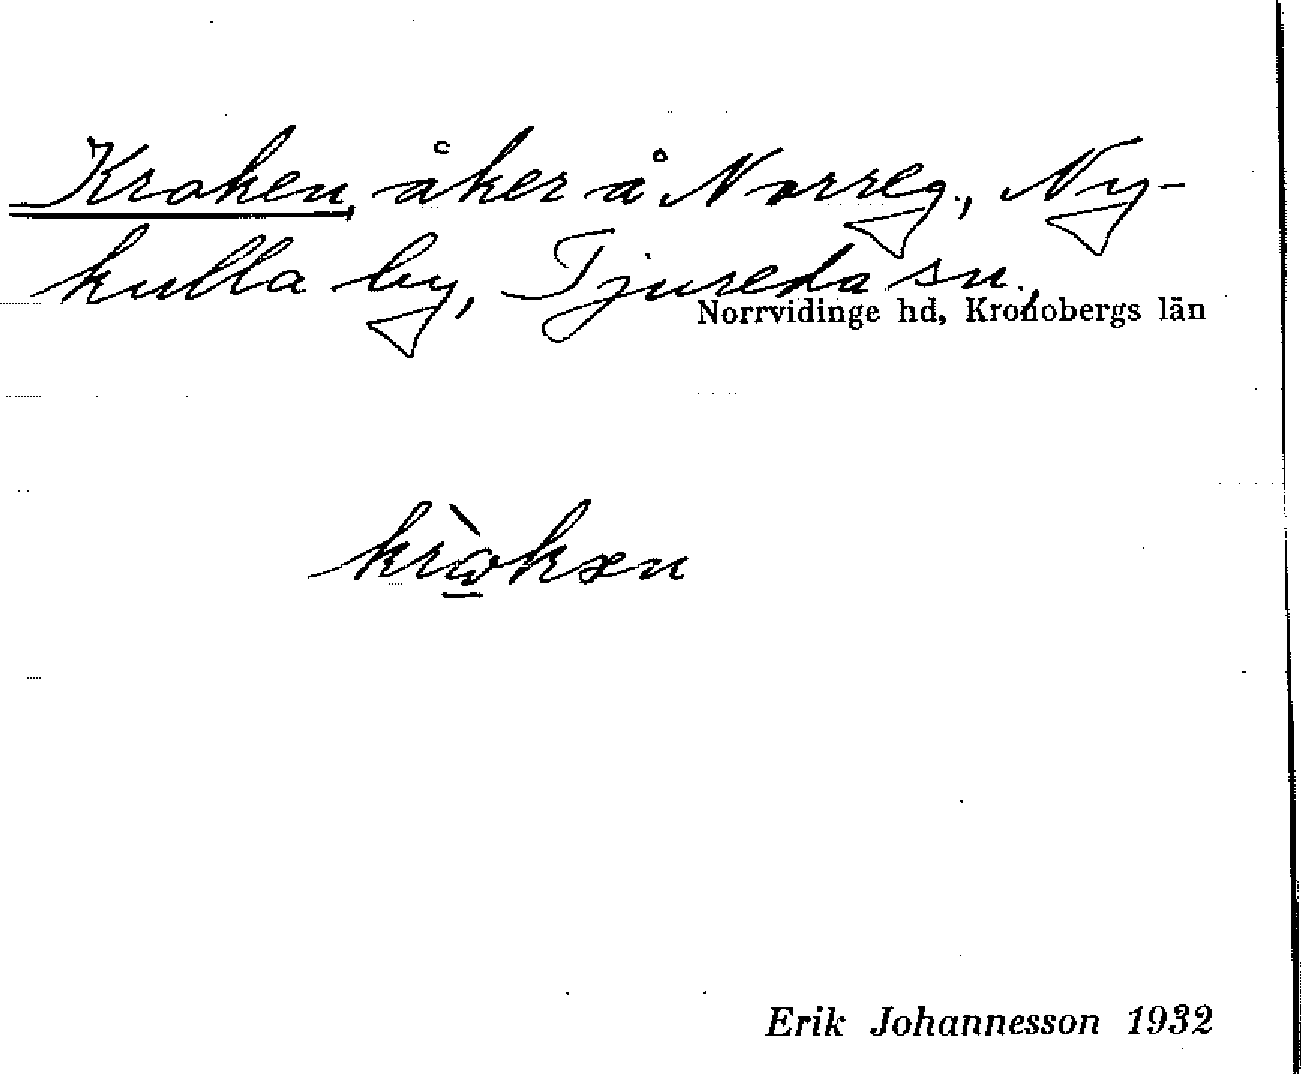 Kroken, åker å Norreg., Ny-
kulla by, Tjureda sn.,
Norrvidinge hd, Kronobergs län
Erik Johannesson 1932